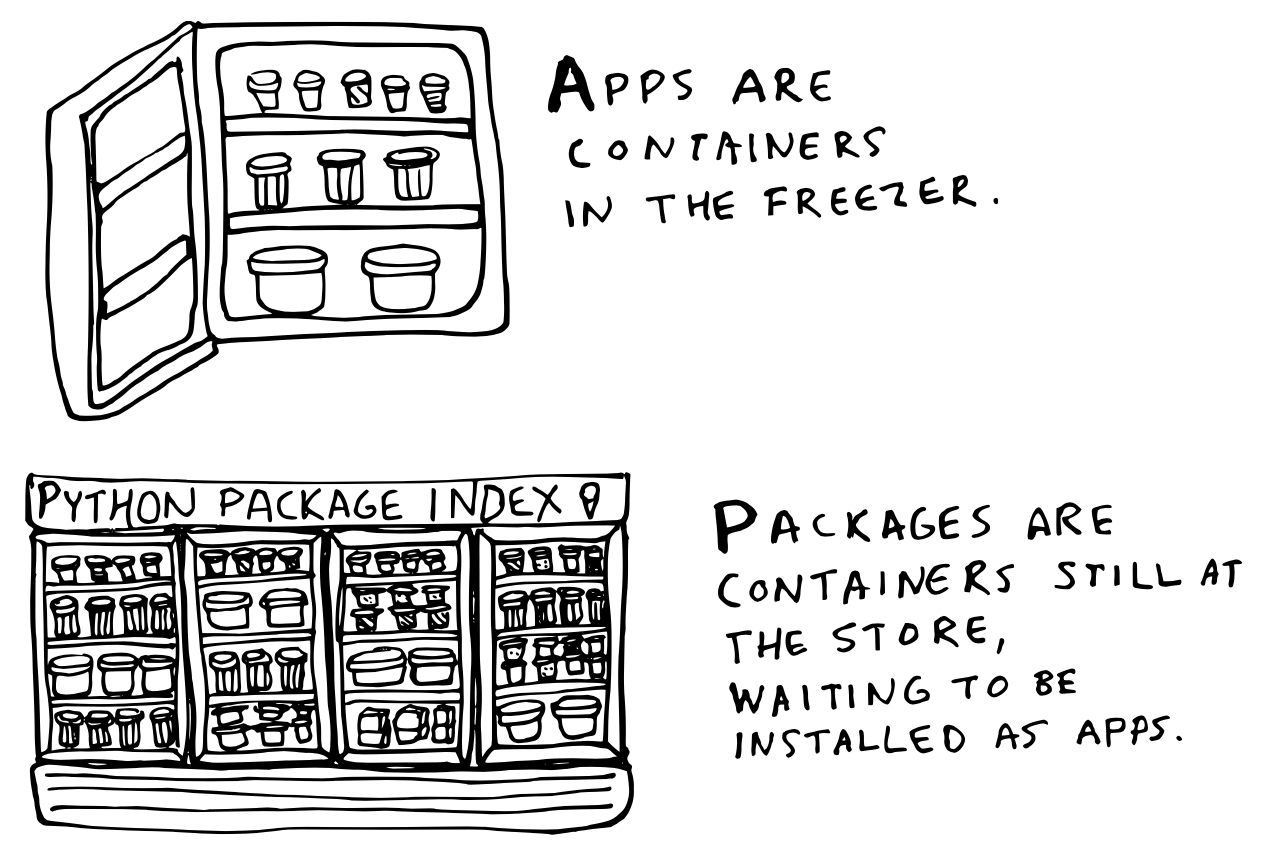 APPS ARE
CONTAINERS
IN THE FREEZER.
PYTHON PACKAGE INDEX
PACKAGES ARE
CONTAINERS STILL AT
THE STORE,
WAITING TO BE
INSTALLED AS APPS.